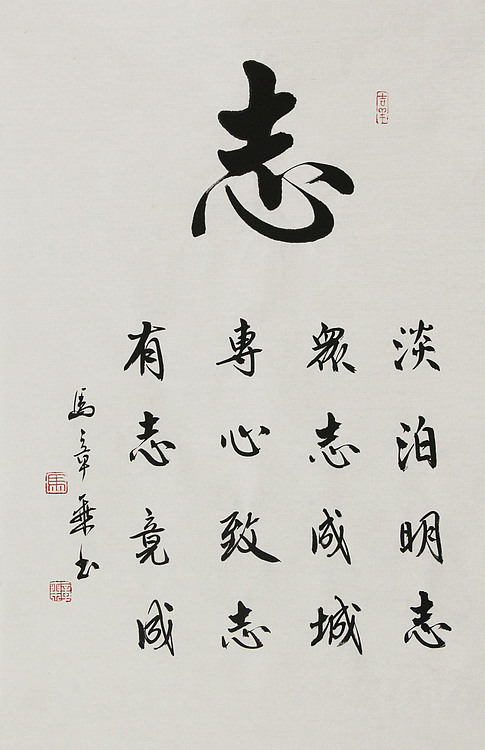 志
淡泊明志
衆志成城
專心致志
有志竟成
馬章乘书